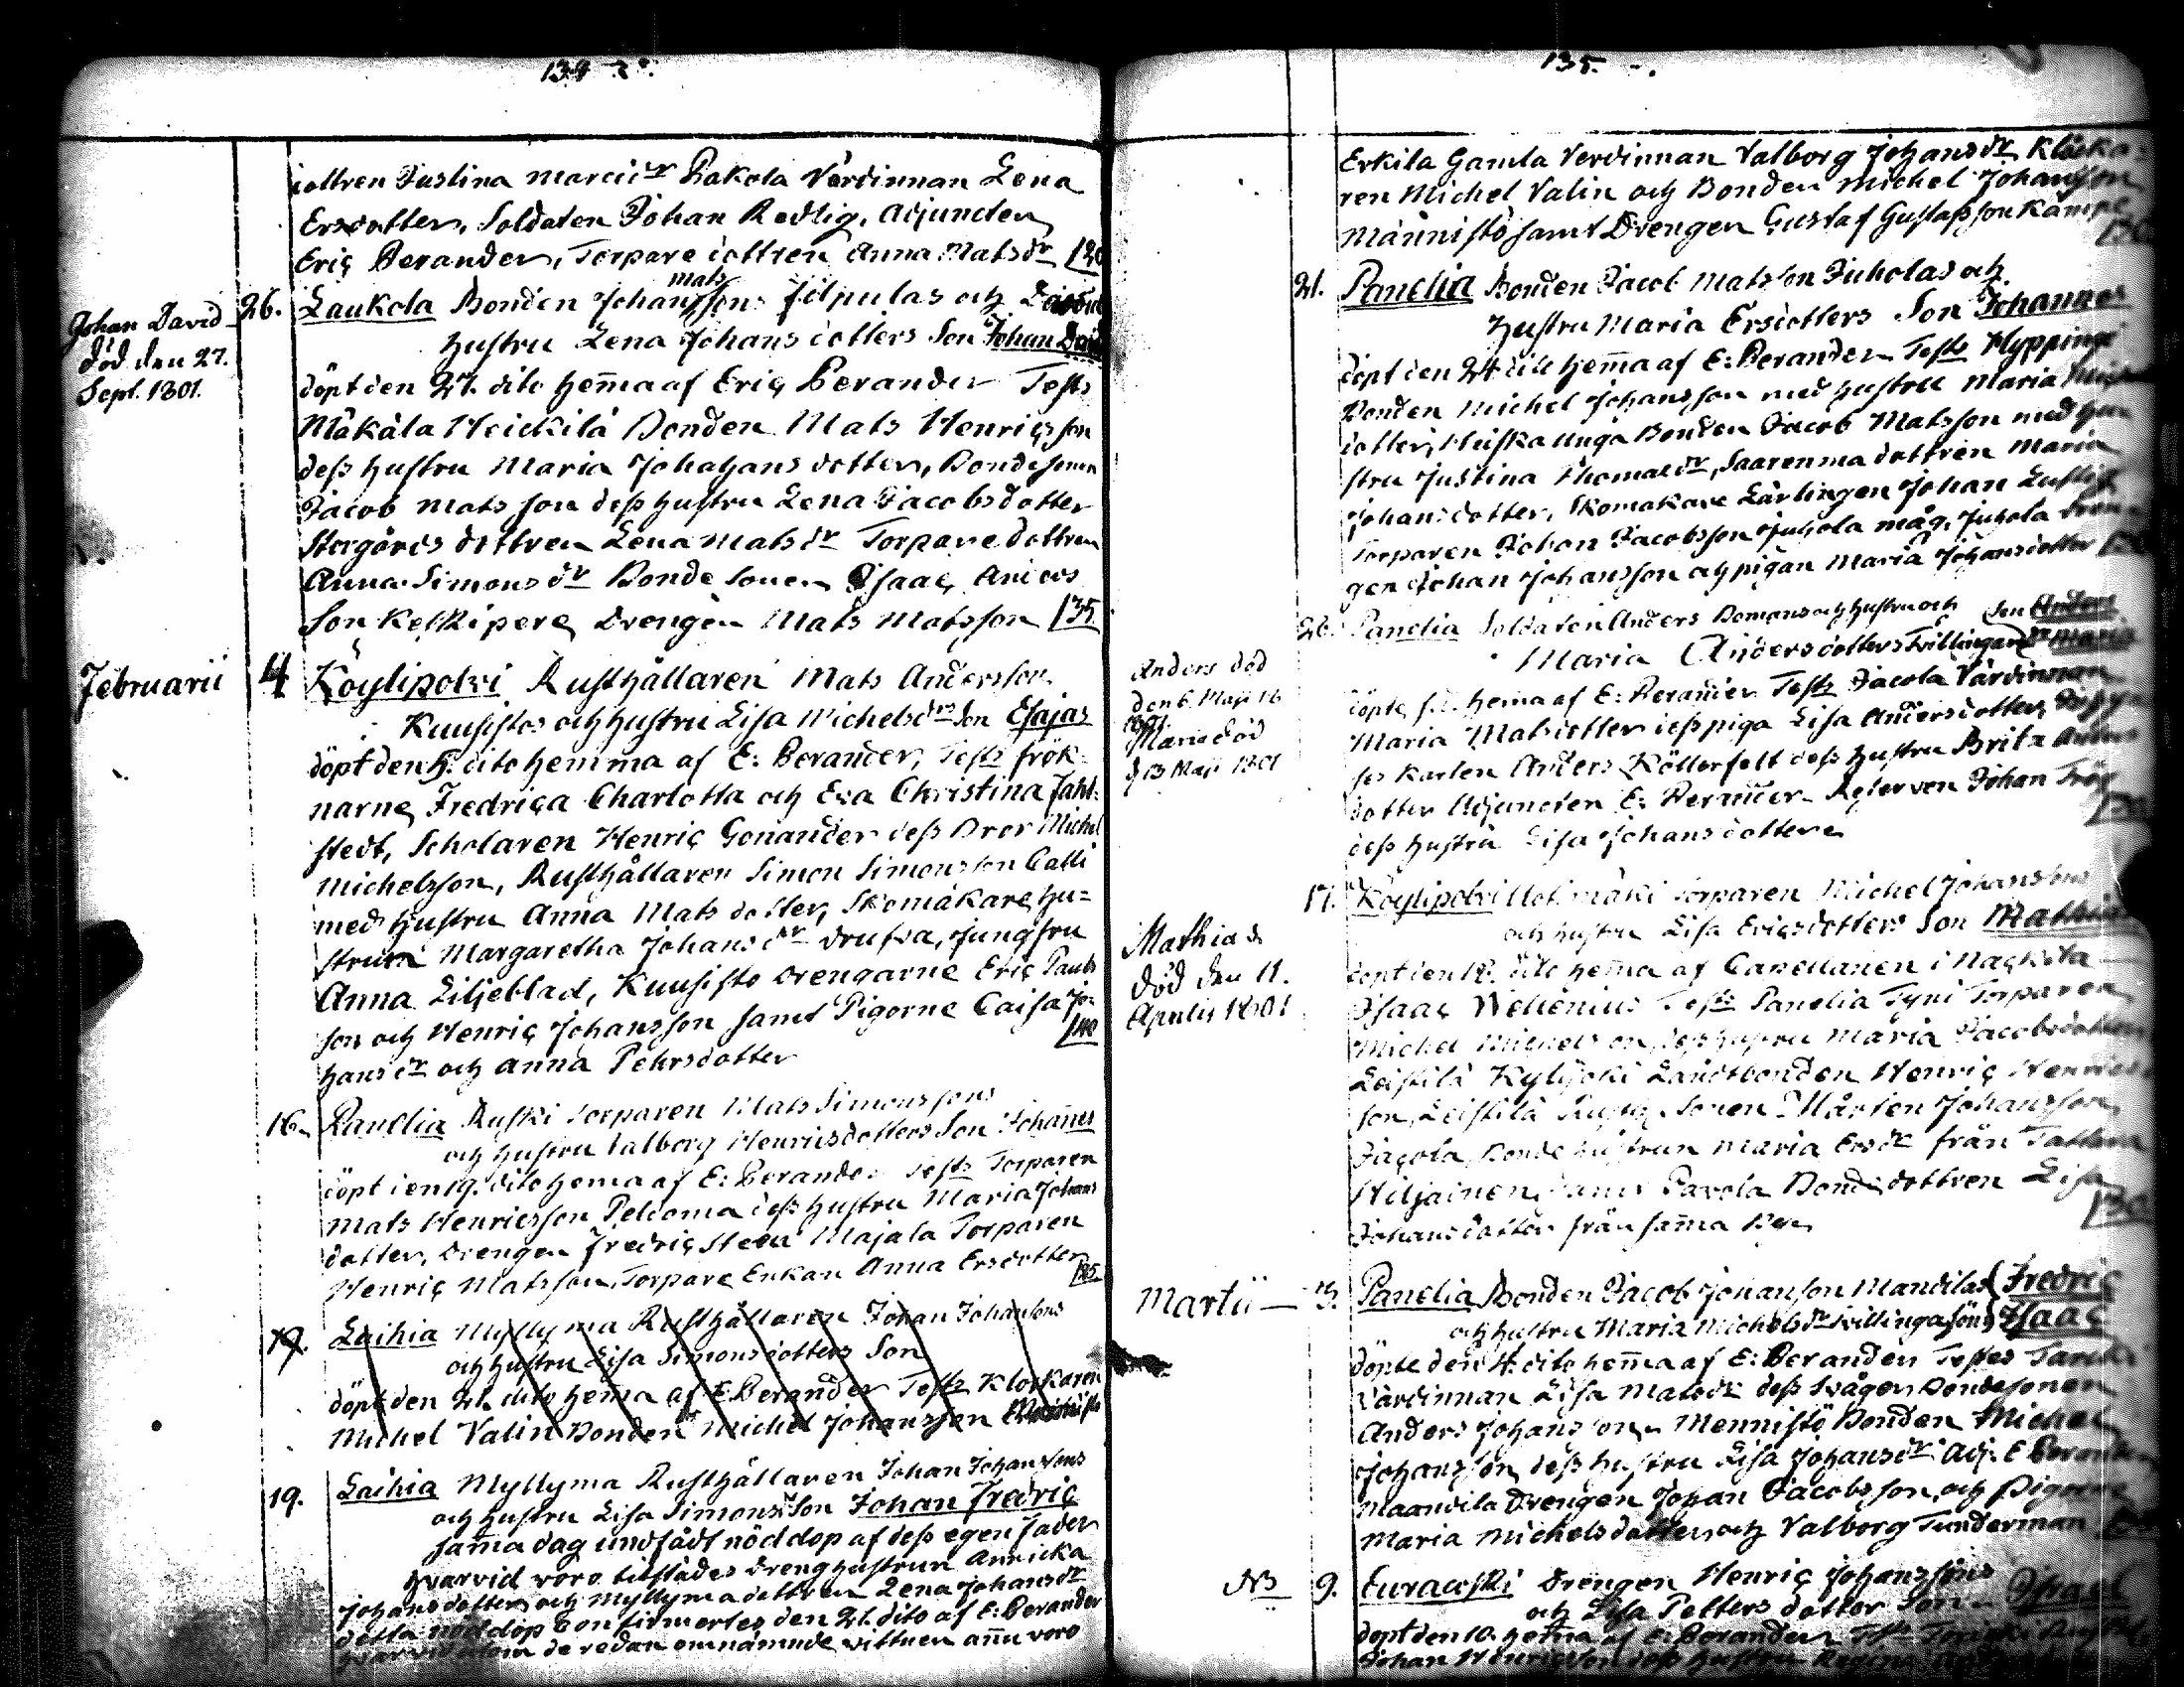 134
dottren Justina Marci dr Pakola Värdinnan Lena
Ersdotter, Soldaten Johan Redlig, Adjuncten
Eric Berander, Torpare dottren Anna Mats dr
Johan David
död den 27.
Sept. 1801.
26. Laukola Bonden Johan Mats son Filpulas och
hustru Lena Johans dotters Son Johan David
döpt den 27. dito hem̃a af Eric Berander Tests
Mäkälä Heickilä Bonden Mats Henricsson
dess hustru Maria Johahans dotter, Bondesonen
Jacob Mats son dess hustru Lena Jacobsdotter
Storgårds dottren Lena Mats dr Torpare dottren
Anna Simons dr Bonde Sonen Isaac Anders
Son Keskipere Drengen Mats Matsson 35
Februarii 4 Köylipolvi Rusthållaren Mats Andersson
Kuusistos och hustru Lisa Michels drs Son Esajas
döpt den 5. dito hemma af E: Berander, Tests frök-
narne Fredrica Charlotta och Eva Christina Fahl-
stedt, Scholaren Henric Gonander dess Bror Michel
Michelsson, Rusthållaren Simon Simonsson Calli
med hustru Anna Mats dotter, Skomakare hu=
strun Margaretha Johans dr Drufva, Jungfru
Anna Liljeblad, Kuusisto Drengarne Eric Pauls
son och Henric Johansson samt Pigorne Caisa Jo-
hans dr och Anna Pehrsdotter
16. Panelia Ruski Torparen Mats Simonssons
och hustru Valborg Henricsdotters Son Johan̄es
döpt den 19. dito hem̃a af E: Berander Tests Torparen
Mats Henricsson Peldoma dess hustru Maria Johans
dotter, Drengen Fredric Steen Majala Torparen
Henric Matsson, Torpare Enkan Anna Ersdotter
19. Laihia Myllyma Rusthållaren Johan Johansons
och hustru Lisa Simonsdotters Son
döpt den 21. dito hem̃a af E Berander Tests Klockaren
Michel Valin Bonden Michel Johansson
19. Laihia Myllyma Rusthållaren Johan Johanssons
och hustru Lisa Simons Son Johan Fredric
sam̃a dag undfådt nöddop af dess egen Fader
hvarvid voro tilstädes Dreng hustrun Annicka
Johansdotter och Myllyma dottren Lena Johans dr
detta nöddop confirmertes den 21. dito af E: Berander
hvarvid utom de redan omnämnde vittnen an̄u voro
135.
Erkila Gamla Verdinnan Valborg Johans dr Klocka-
ren Michel Valin och Bonden Michel Johansson
Männistö samt Drengen Gustaf Gustafsson Kämpe
21. Panelia Bonden Jacob Matsson Juholas och
hustru Maria Ersdotters Son Johannes
döpt den 24 dito hem̃a af E: Berander Tests Hyppingi
Bonden Michel Johansson med hustru Maria
dotter, Heiska unga Bonden Jacob Matsson med hu
stru Justina Thomae dr, Saarenma dottren Maria
Johansdotter, Skomakare Lärlingen Johan Lustig
Torparen Johan Jacobsson Juhola måg, Juhola Dren-
gen Johan Johansson och pigan Maria Johansdotter
Anders död
den 6. Maji
Maria död
d 13 Maji 1801
26. Panelia Soldaten Anders Domans och hustru Son Anders
Maria Andersdotters Tvillingar dr Maria
döpte hem̃a af E: Berander Tests Jacola Värdinnan
Maria Matsdotter dess piga Lisa Andersdotter,
Karlen Anders Kötterfelt dess hustru Brita Anders
dotter Adjuncten E: Berander Reserven Johan
dess hustru Lisa Johans dotter
Mathias
död den 11.
Aprilis 1801
17. Köylipolvi Torparen Michel Johanssons
och hustru Lisa Ericsdotters Son Mathias
döpt den 18. dito hem̃a af Capellanen i
Isaac Tests Panelia Tyni Torparen
Michel dess hustru Maria Jacobsdotter
Leistilä Kyljoki Landbonden Henric
son, Leistilä Sonen Mårten Johansson,
Jacola Bonde hustrun Maria Ers dr från
Hiljainen samt Pavola Bonde dottren Lisa
Johansdotter från sam̃a
Martii 3. Panelia Bonden Jacob Johansson Mandilas Fredric
och hustru Maria Michels dr tvillinga söner Isaac
döpte den 4. dito hem̃a af E: Berander Testes
värdinnan Lisa Mats dr dess Svåger Bondesonen
Anders Johansson, Mennistö Bonden Michel
Johansson, dess hustru Lisa Johans dr Adj. E Berander
Maandila Drengen Johan Jacobsson, och Pigorne
Maria Michelsdotter och Valborg Tunderman
NB 9. Euracoski Drengen Henric Johanssons
och Lisa Petters dotter Son Israel
döpt den 10. hem̃a af E: Berander
Johan Henricsson dess hustru